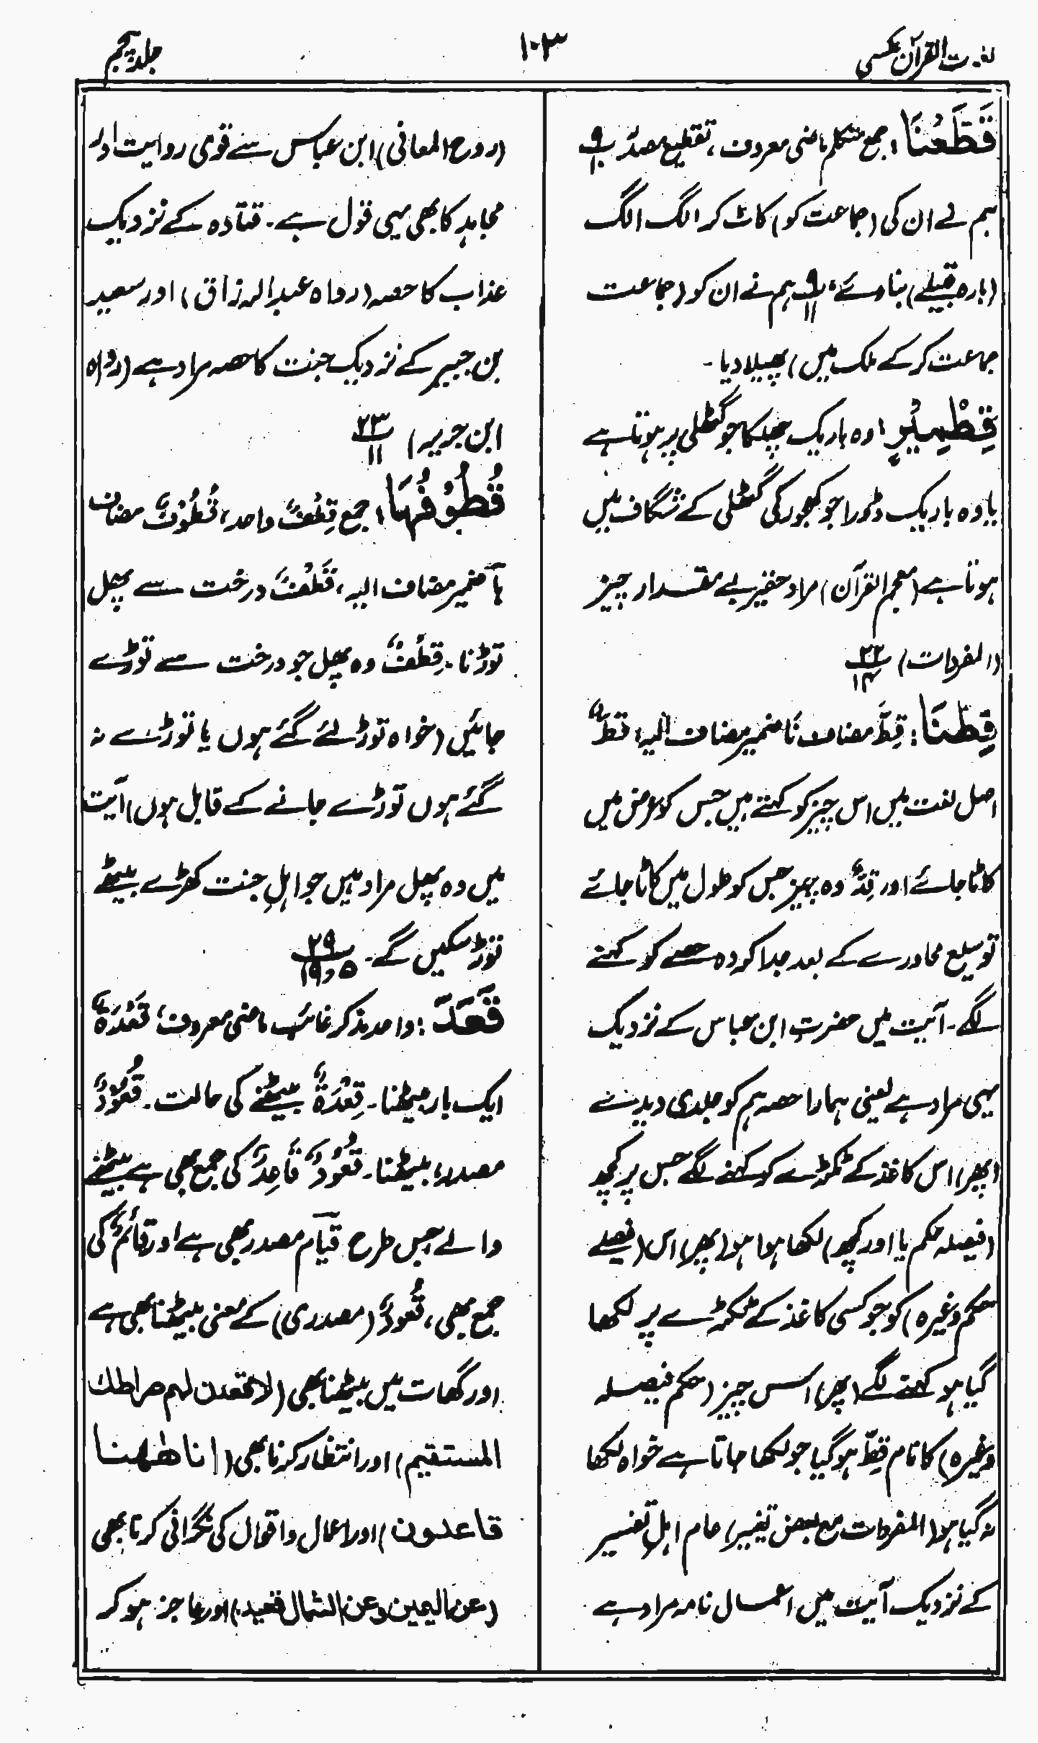 لغات القرآن عکسی
۱۰۳
جلد پنجم
قَطَّعْنَا: جمع متکلم ماضی معروف، تقطیع مصدر ۹/۱۰
ہم نے ان کی (جماعت کو) کاٹ کر الگ الگ
(بارہ قبیلے) بنا دئے، ۹/۱۱ ہم نے ان کو (جماعت
جماعت کر کے ملک میں) پھیلا دیا۔
قِطْمِيْرٍ: وہ باریک چھلکا جو گٹھلی پر ہوتا ہے
یا وہ باریک ڈورا جو کھجور کی گٹھلی کے شگاف میں
ہوتا ہے (معجم القرآن) مراد حقیر بے مقدار چیز
(المفردات) ۲۲/۱۴
قِطَّنَا: قِطَّ مضاف نَا ضمیر مضاف الیہ، قِطٌّ
اصل لغت میں اس چیز کو کہتے ہیں جس کو عرض میں
کاٹا جائے اور قِدٌّ وہ چیز جس کو طول میں کاٹا جائے
توسیع محاورے کے بعد جدا کردہ حصے کو کہنے
لگے۔ آیت میں حضرت ابن عباس کے نزدیک
یہی مراد ہے یعنی ہمارا حصہ ہم کو جلدی دیدے
(پھر) اس کاغذ کے ٹکڑے کو کہنے لگے جس پر کچھ
(فیصلہ حکم یا اور کچھ) لکھا ہوا ہو (پھر) اس (فیصلے
حکم وغیرہ) کو جو کسی کاغذ کے ٹکڑے پر لکھا
گیا ہو کہنے لگے (پھر) اس چیز (حکم فیصلہ
وغیرہ) کا نام قِطّ ہو گیا جو لکھا جاتا ہے خواہ لکھا
نہ گیا ہو (المفردات مع بعض تغییر) عام اہل تفسیر
کے نزدیک آیت میں اعمال نامہ مراد ہے
(روح المعانی) ابن عباس سے قوی روایت اور
مجاہد کا بھی یہی قول ہے۔ قتادہ کے نزدیک
عذاب کا حصہ (رواہ عبدالرزاق) اور سعید
بن جبیر کے نزدیک جنت کا حصہ مراد ہے (رواہ
ابن جریر) ۲۳/۱۱
قُطُوْفُهَا: جمع قِطْفٌ واحد، قُطُوْفٌ مضاف
ہَا ضمیر مضاف الیہ، قَطْفٌ درخت سے پھل
توڑنا۔ قِطْفٌ وہ پھل جو درخت سے توڑے
جائیں (خواہ توڑ لئے گئے ہوں یا توڑے نہ
گئے ہوں توڑے جانے کے قابل ہوں) آیت
میں وہ پھل مراد ہیں جو اہلِ جنت کھڑے بیٹھے
توڑ سکیں گے۔ ۲۹/۵ و ۱۹
قَعَدَ: واحد مذکر غائب ماضی معروف، قَعْدَةٌ
ایک بار بیٹھنا۔ قِعْدَةٌ بیٹھنے کی حالت۔ قُعُوْدٌ
مصدر، بیٹھنا۔ قُعُوْدٌ قَاعِدٌ کی جمع بھی ہے بیٹھنے
والے جس طرح قیام مصدر بھی ہے اور قَائِمٌ کی
جمع بھی، قُعُودٌ (مصدری) کے معنی بیٹھنا بھی ہے
اور گھات میں بیٹھنا بھی (لاقعدن لہم صراطک
المستقیم) اور انتظار کرنا بھی (انا ھٰھنا
قاعدون) اور اعمال و اقوال کی نگرانی کرنا بھی
(عن الیمین وعن الشمال قعید) اور عاجز ہو کر